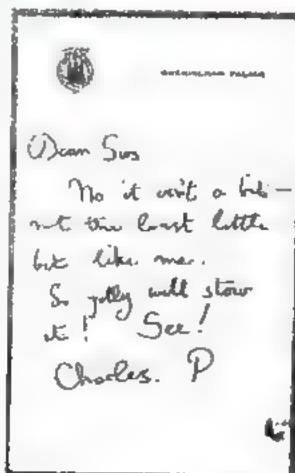 BUCKINGHAM PALACE
Dear Sirs
No it isn't a bit —
not the least little
bit like me.
So jolly well stow
it! See!
Charles. P